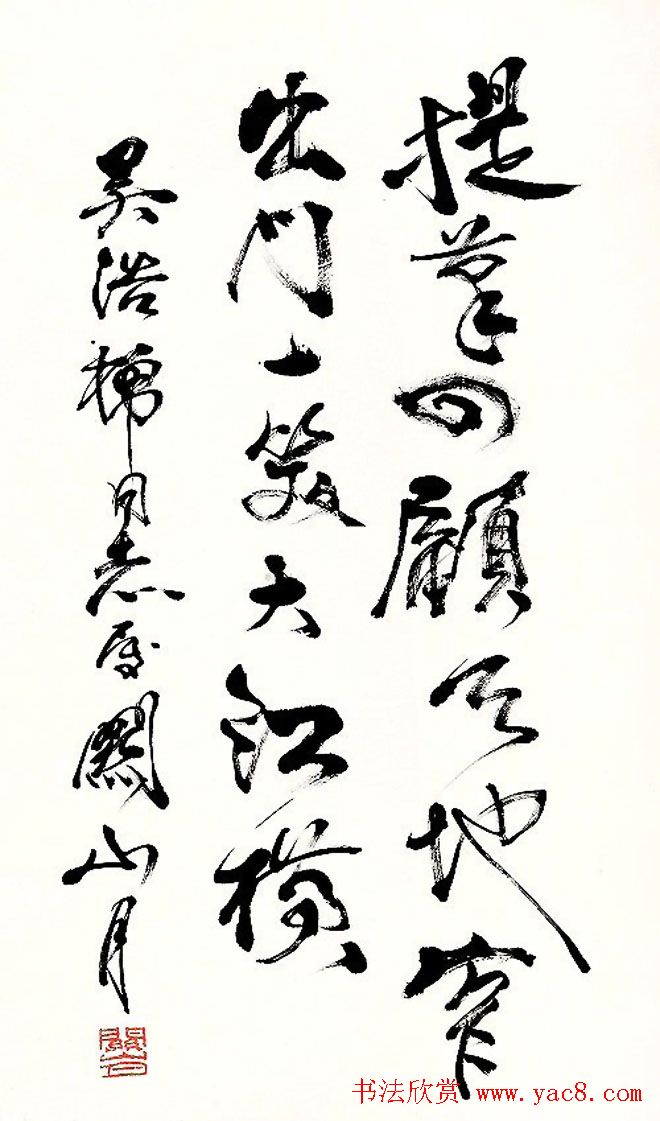 提筆四顧天地窄
出門一笑大江横
吴浩同志属 關山月
书法欣赏 www.yac8.com